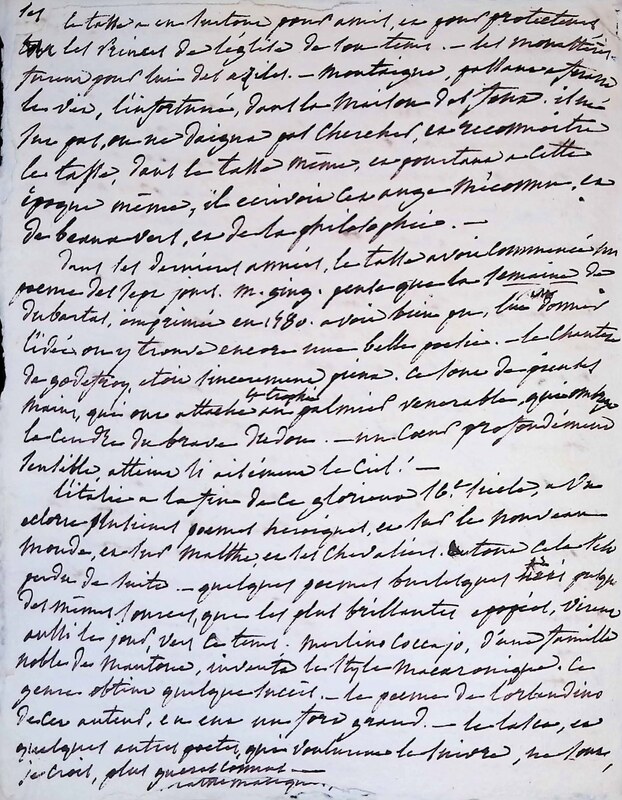 le tasse a eu surtout pour amis, et pour protecteurs
les Princes de l'église de son tems. — les monastères
furent pour lui des aziles. — Montaigne, passant a ferrare
le vit, l'infortuné, dans la maison des fous. il ne
sut pas, ou ne daigna pas chercher, et reconnoitre
le tasse, dans le tasse même, et pourtant a cette
époque même, il ecrivoit cet ange méconnu, et
de beaux vers, et de la philosophie. —
Dans ses dernières années, le tasse avoit commencé un
poeme des sept jours. M. ging. pense que la semaine de
dubartas, imprimée en 1580. avoit bien pu, lui en donner
l'idée on y trouve encore une belle poesie. — le chantre
de godefroy etoit sincerement pieux. ce sont de pieuses
mains, qui ont attaché le trophée au palmier venerable, qui ombrage
la cendre du brave dudon. — un cœur profondément
sensible atteint si aisément le ciel! —
l'italie a la fin de ce glorieux 16.e siècle, a vu
eclorre plusieurs poemes heroiques, et sur le nouveau
monde, et sur Malthe, et ses chevaliers. tout cela s'est
perdu de suite. — quelques poemes burlesques nés presque
des mêmes sources, que les plus brillantes epopées, virent
aussi le jour, vers ce tems. Merlino Coccajo, d'une famille
noble de Mantoue, inventa le style macaronique. Ce
genre obtint quelque succès. — le poeme de l'orlandino
de cet auteur, en eut un fort grand. — le lasca, et
quelques autres poetes, qui voulurent le suivre, ne sont,
je crois, plus